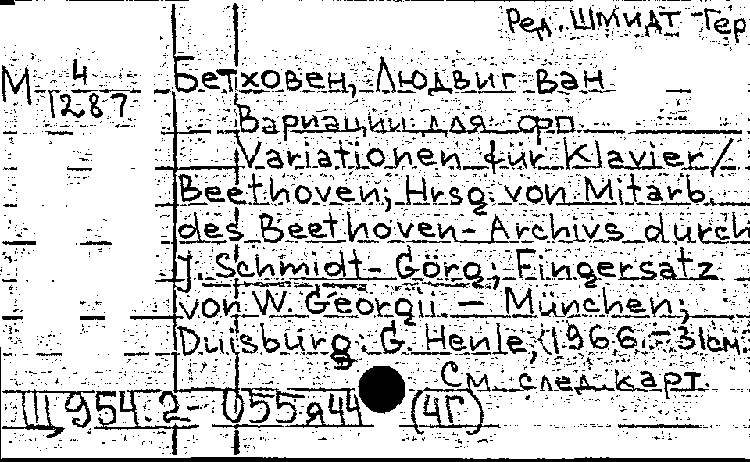 Ред. Шмидт-Гер
М 4/1287
Бетховен, Людвиг ван
Вариации для фп.
Variationen für Klavier/
Beethoven; Hrsg. von Mitarb.
des Beethoven-Archivs durch
J. Schmidt-Görg; Fingersatz
von W. Georgii. — München;
Duisburg: G. Henle, 1966. - 31см.
См. след. карт.
Щ954.2-055я44 (4Г)